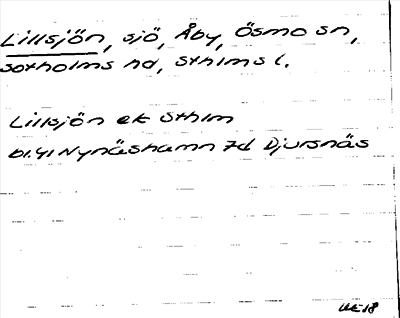 Lillsjön, sjö, Åby, Ösmo sn,
Sotholms hd, Sthlms l.
Lillsjön ek Sthlm
bl.41 Nynäshamn 7d Djursnäs